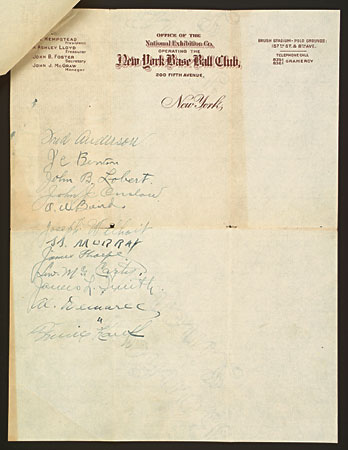 HEMPSTEAD
President
ASHLEY LLOYD
Treasurer
JOHN B. FOSTER
Secretary
JOHN J. McGRAW
Manager
OFFICE OF THE
National Exhibition Co.
OPERATING THE
New York Base Ball Club,
200 FIFTH AVENUE,
New York,
BRUSH STADIUM - POLO GROUNDS
157TH ST. & 8TH AVE.
TELEPHONE CALL
GRAMERCY
Fred Anderson
J C Benton
John B. Lobert.
John J.
Joseph
J.J. MURRAY
James Thorpe
James L. Smith.
A. Demaree